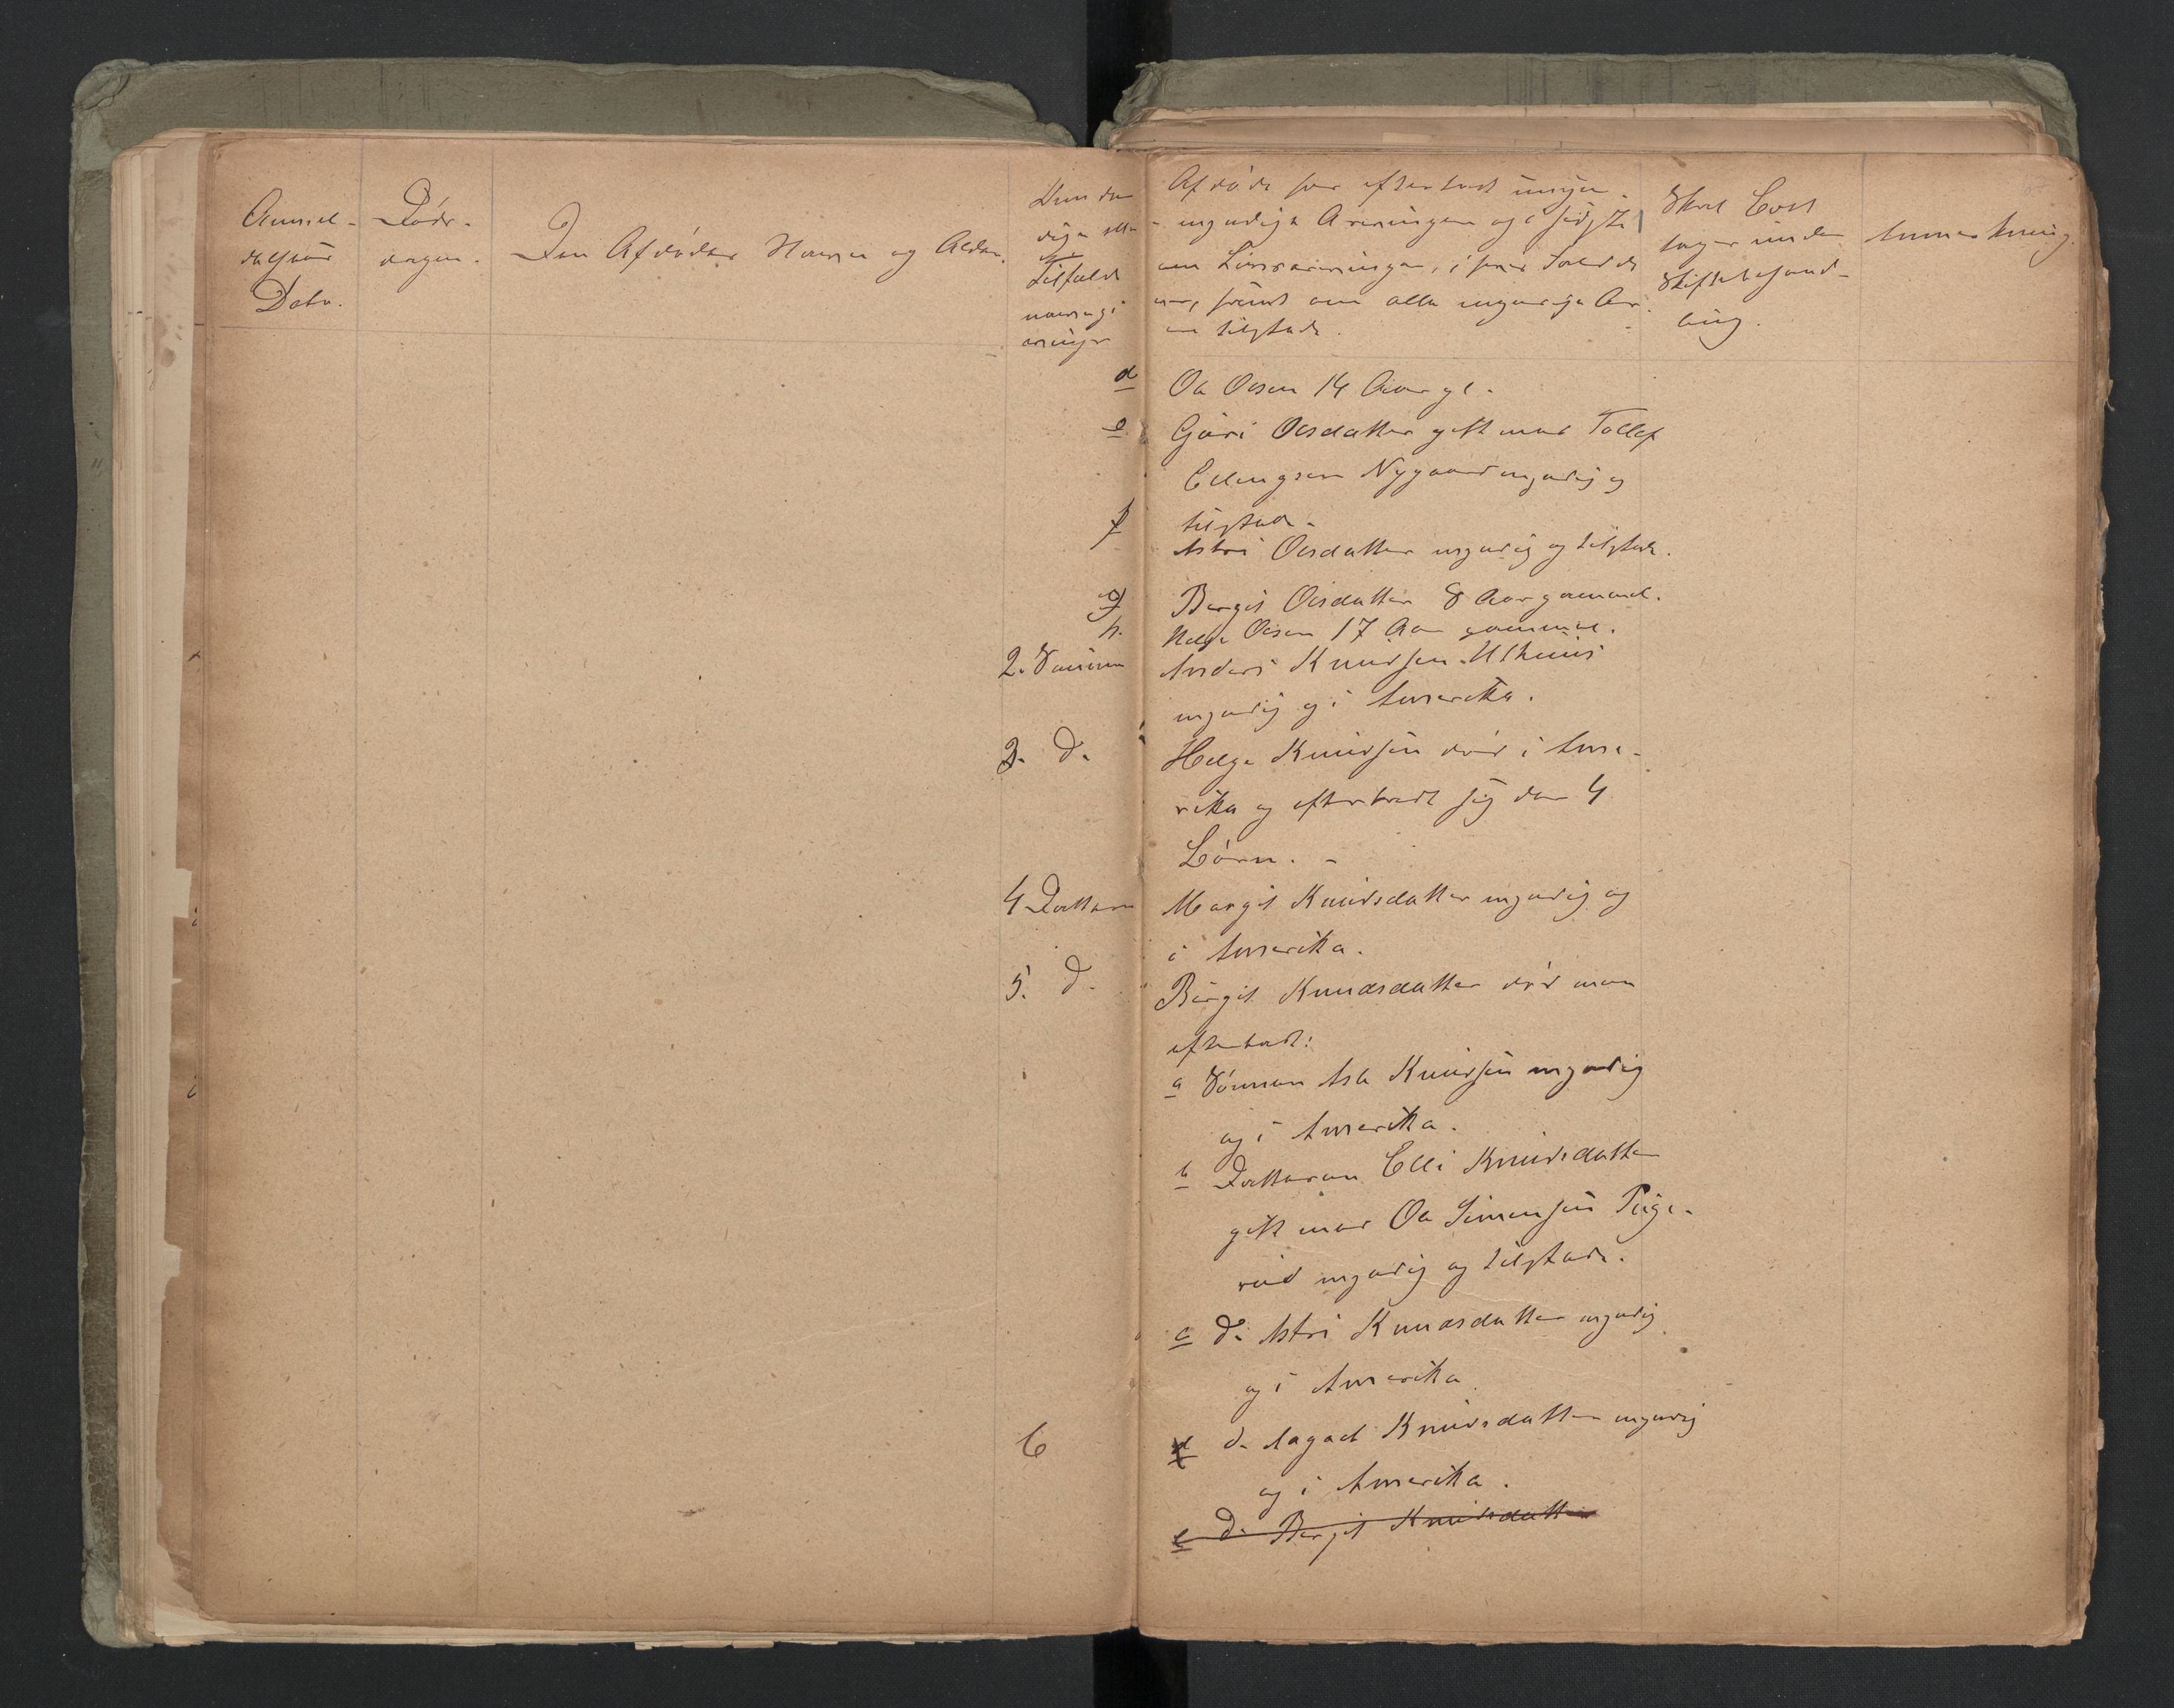 Anmel-
delsens
Dato.
Døds-
dagen.
Den Afdødes Navn og Alder.
Hvem den
Afdøde har efterladt
- myndige Arvinger og i sidste
Tilfælde
om Livsarvinger, i hvis Fald de
samt om alle myndige Ar-
tilstede.
Skal Boet
tages under
Skiftebehand-
ling.
Anmærkning.
d Ole Olsen 14 Aar gl.
e Gjøri Olsdatter gift med Tollef
Ellingsen Nygaard myndig og
tilstede.
f Astri Olsdatter myndig og tilstede.
g Bergit Olsdatter 8 Aar gammel.
h. Helge Olsen 17 Aar gammel.
2. Sønnen Anders Knudsen
myndig og i Amerika.
3. D. Helge Knudsen død i Ame-
rika og efterladt sig der 4
Børn. -
4 Datteren Margit Knudsdatter myndig og
i Amerika.
5. D. Birgit Knudsdatter død men
efterladt:
a Sønnen Asle Knudsen myndig
og i Amerika.
b Datteren Elli Knudsdatter
gift med Ole Simensen
myndig og tilstede.
c D. Astri Knudsdatter myndig
og i Amerika
6
d D. Aagaat Knudsdatter myndig
og i Amerika.
e D. Bergit Knudsdatter